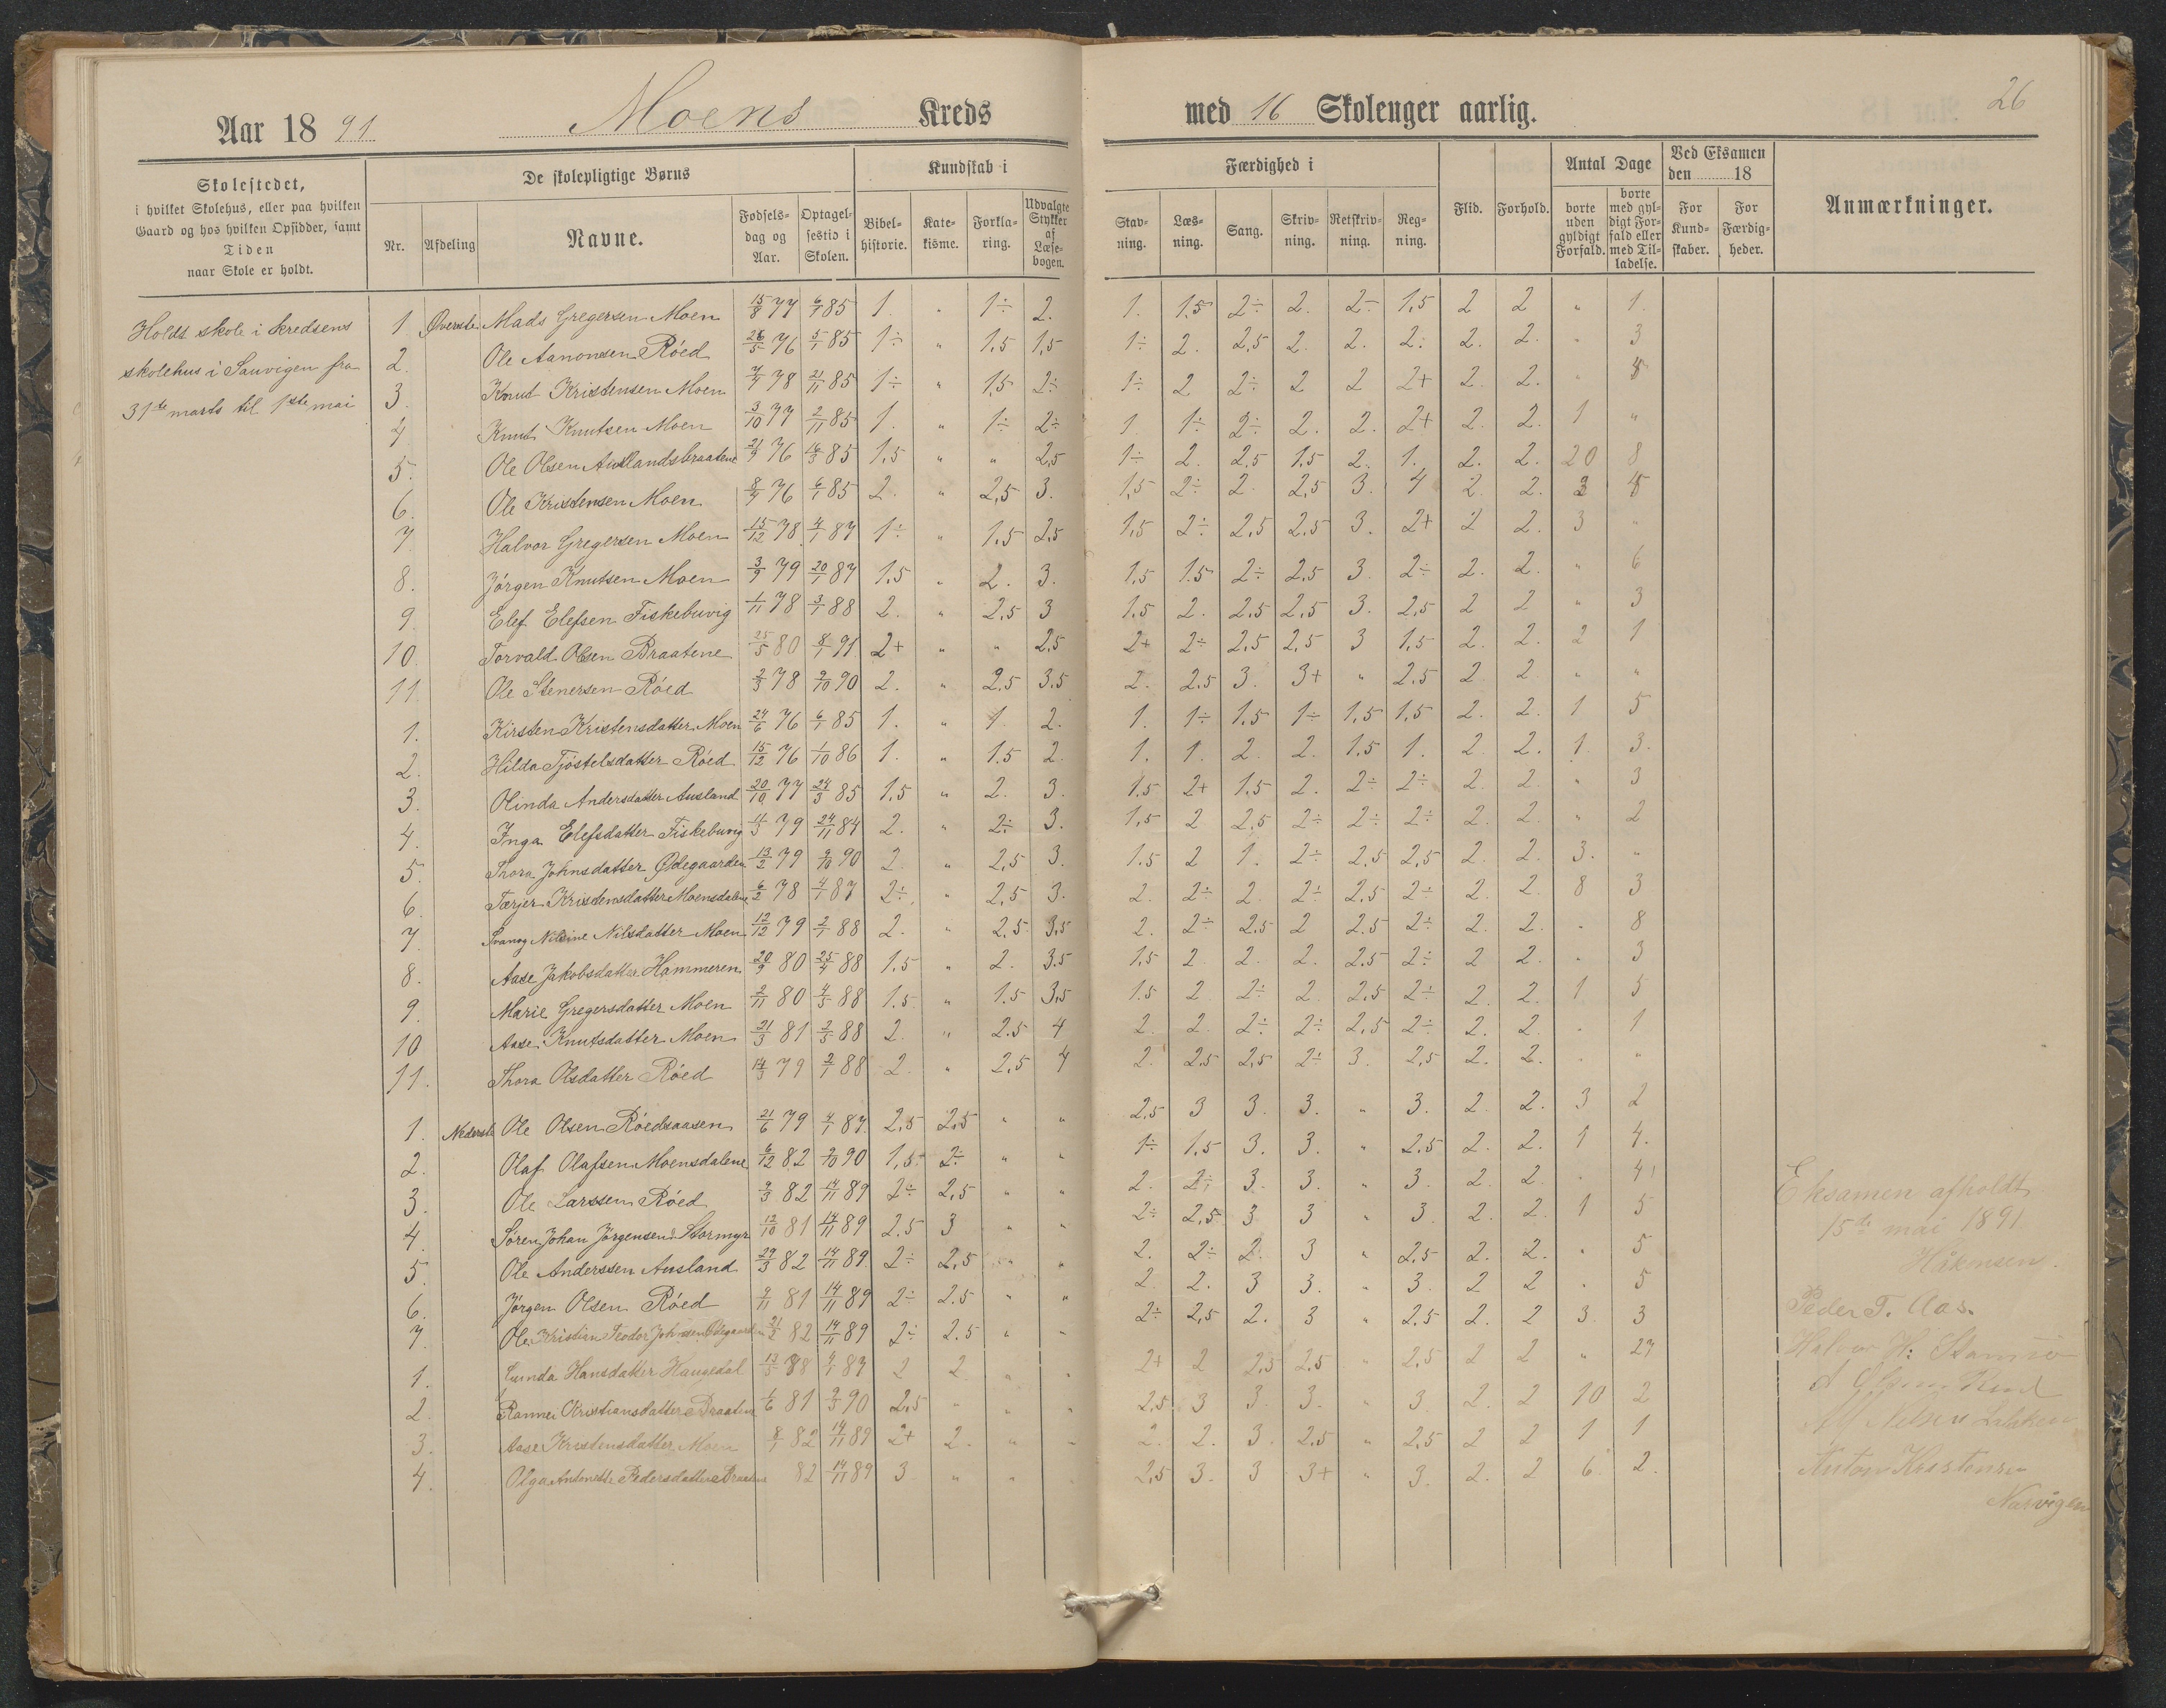 26
Aar 1891 Moens Kreds med 16 Skolenger aarlig.
Skolestedet, i hvilket Skolehus, eller paa hvilken Gaard og hos hvilken Opsidder, samt Tiden naar Skole er holdt.
De skolepligtige Børns
Nr. Afdeling Navne. Fødsels-dag og Aar. Optagel-sestid i Skolen.
Kundskab i
Bibel-historie. Kate-kisme. Forkla-ring. Udvalgte Stykker af Læse-bogen.
Færdighed i
Stav-ning. Læs-ning. Sang. Skriv-ning. Retskriv-ning. Reg-ning.
Flid. Forhold.
Antal Dage
borte uden gyldigt Forfald. borte med gyl-digt For-fald eller med Til-ladelse.
Ved Eksamen den 18
For Kund-skaber. For Færdig-heder.
Anmærkninger.
Holdt skole i kredsens
skolehus i Sauvigen fra
31te marts til 1ste mai
1. Øverste Mads Gregersen Moen 15/8 77 6/1 85 1. " 1÷ 2. 1. 1.5 2÷ 2. 2÷ 1,5 2 2 " 1.
2. Ole Aanonsen Röed 26/5 76 5/1 85 1÷ " 1.5 1,5 1÷ 2. 2,5 2. 2. 2. 2. 2. " 3
3. Knut Kristensen Moen 7/7 78 21/11 85 1÷ " 1.5 2÷ 1÷ 2 2÷ 2 2 2+ 2. 2. "
4. Knut Knutsen Moen 3/10 77 2/11 85 1. " 1÷ 2÷ 1 1÷ 2÷ 2. 2. 2+ 2. 2. 1 "
5. Ole Olsen Auslandsbraatene 21/9 76 16/3 85 1,5 " " 2,5 1÷ 2. 2,5 1.5 2. 1. 2. 2. 20 8
6. Ole Kristensen Moen 8/7 76 6/1 85 2. " 2,5 3. 1,5 2÷ 2. 2,5 3. 4 2. 2.
7. Halvor Gregersen Moen 15/12 78 4/1 87 1÷ " 1.5 2.5 1,5 2÷ 2,5 2,5 3. 2+ 2 2. 3 "
8. Jörgen Knutsen Moen 3/9 79 20/1 87 1.5 " 2. 3. 1,5 1.5 2÷ 2,5 3. 2÷ 2. 2. " 6
9. Elef Elefsen Fiskebuvig 1/11 78 3/1 88 2. " 2.5 3 1.5 2. 2.5 2,5 3. 2,5 2 2 " 3
10. Torvald Olsen Braatene 25/5 80 8/1 91 2+ " " 2,5 2+ 2÷ 2,5 2,5 3 1,5 2. 2. 2 1
11. Ole Stenersen Röed 2/3 78 9/10 90 2. " 2.5 3.5 2. 2.5 3. 3+ " 2.5 2 2 " "
1. Kirsten Kristensdatter Moen 24/6 76 6/1 85 1. " 1. 2. 1. 1÷ 1.5 1÷ 1,5 1,5 2. 2. 1 5
2. Hilda Tjöstelsdatter Röed 15/12 76 1/10 86 1. " 1.5 2. 1. 1. 2 2. 1.5 1. 2 2. 1. 3.
3. Olinda Andersdatter Ausland 20/10 77 24/3 85 1,5 " 2. 3. 1.5 2+ 1.5 2. 2÷ 2÷ 2. 2. " 3
4. Inga Elefsdatter Fiskebuvig 79 24/11 84 2. " 2÷ 3. 1,5 2 2,5 2÷ 2÷ 2÷ 2. 2. " 2
5. Thora Johnsdatter Ødegaarden 13/2 79 9/10 90 2. " 2,5 3. 1.5 2 1. 2÷ 2.5 2,5 2. 2. 3. "
6. Tarjer Kristensdatter Moensdalene 6/2 78 4/1 87 2÷ " 2,5 3. 2. 2÷ 2 2÷ 2.5 2÷ 2. 2. 8 3
7. Svanog Nilsine Nilsdatter Moen 12/12 79 2/1 88 2. " 2.5 3,5 2. 2÷ 2.5 2 2.5 2÷ 2. 2. " 8
8. Aase Jakobsdatter Hammeren 20/9 80 25/4 88 1.5 " 2. 3.5 1,5 2 2. 2. 2.5 2÷ 2 2. " 3
9. Marie Gregersdatter Moen 2/11 80 4/5 88 1.5 " 1.5 3,5 1.5 2 2÷ 2 2,5 2÷ 2. 2. 1 5
10. Aase Knutsdatter Moen 21/3 81 2/5 88 2. " 2.5 4 2. 2. 2÷ 2÷ 2,5 2÷ 2. 2. " 1
11. Thora Olsdatter Röed 14/3 79 2/1 88 2. " 2,5 4 2. 2.5 2,5 2÷ 3. 2,5 2. 2. " "
1. Nederste Ole Olsen Röedsaasen 21/6 79 4/1 87 2,5 2,5 " " 2,5 3 3. 3. " 3. 2. 2. 3 2
2. Olaf Olafsen Moensdalene 6/12 82 9/10 90 1,5 2÷ " " 1÷ 1,5 3. 3. " 2.5 2. 2. 1 4.
3. Ole Larssen Röed 9/3 82 14/11 89 2÷ 2,5 " " 2. 2÷ 3. 3. " 3. 2. 2. " 4
4. Sören Johan Jörgensen Stormyr 12/10 81 14/11 89 2.5 3 " " 2÷ 2,5 3 3 " 3 2. 2. 1 5
5. Ole Anderssen Ausland 29/3 82 14/11 89 2÷ 2,5 " " 2. 2÷ 2. 3 " 2,5 2. 2. " 5
6. Jörgen Olsen Röed 9/11 81 14/11 89 2÷ 2.5 " " 2 2. 3 3. " 3. 2 2 " 5
7. Ole Kristian Teodor Johnsen Ødegaarden 82 14/11 89 2÷ 2.5 " " 2÷ 2,5 2. 3 " 2.5 2. 2 3 3
1. Gunda Hansdatter Haugedal 2 2 " " 2+ 2 2,5 2,5 " 2,5 2 2 " 27
2. Kristiansdatter Braatene 1/6 81 9/5 90 2,5 " " " 2,5 3 3 3. " 3. 2. 2 10 2
3. Aase Kristensdatter Moen 8/1 82 14/11 89 2+ 2. " " 2. 2. 3. 2.5 " 2,5 2 2 1 1
4. Olga Antonette Pedersdatter Braatene 82 14/11 89 3 " " " 2,5 3. 3 3+ " 3. 2. 2 6 2.
Eksamen afholdt
15de mai 1891
Håkonsen.
Peder T. Aas.
Halvor H:
Anton Kristensen
Narvigen